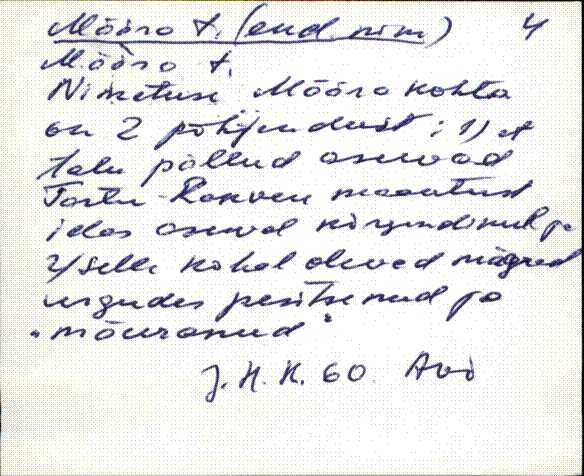 Mõõro t. (end. nim) 4
Mõõro t.
Nimetuse Mõõro kohta
on 2 põhjendust: 1) et
talu põllud asuvad
Tartu-Rakvere maantest
idas asuvad kõrgendikul ja
2) selle kohal olevad mägrad
urgudes pesitsenud ja
"mõuranud"
J. H. K. 60. Avi